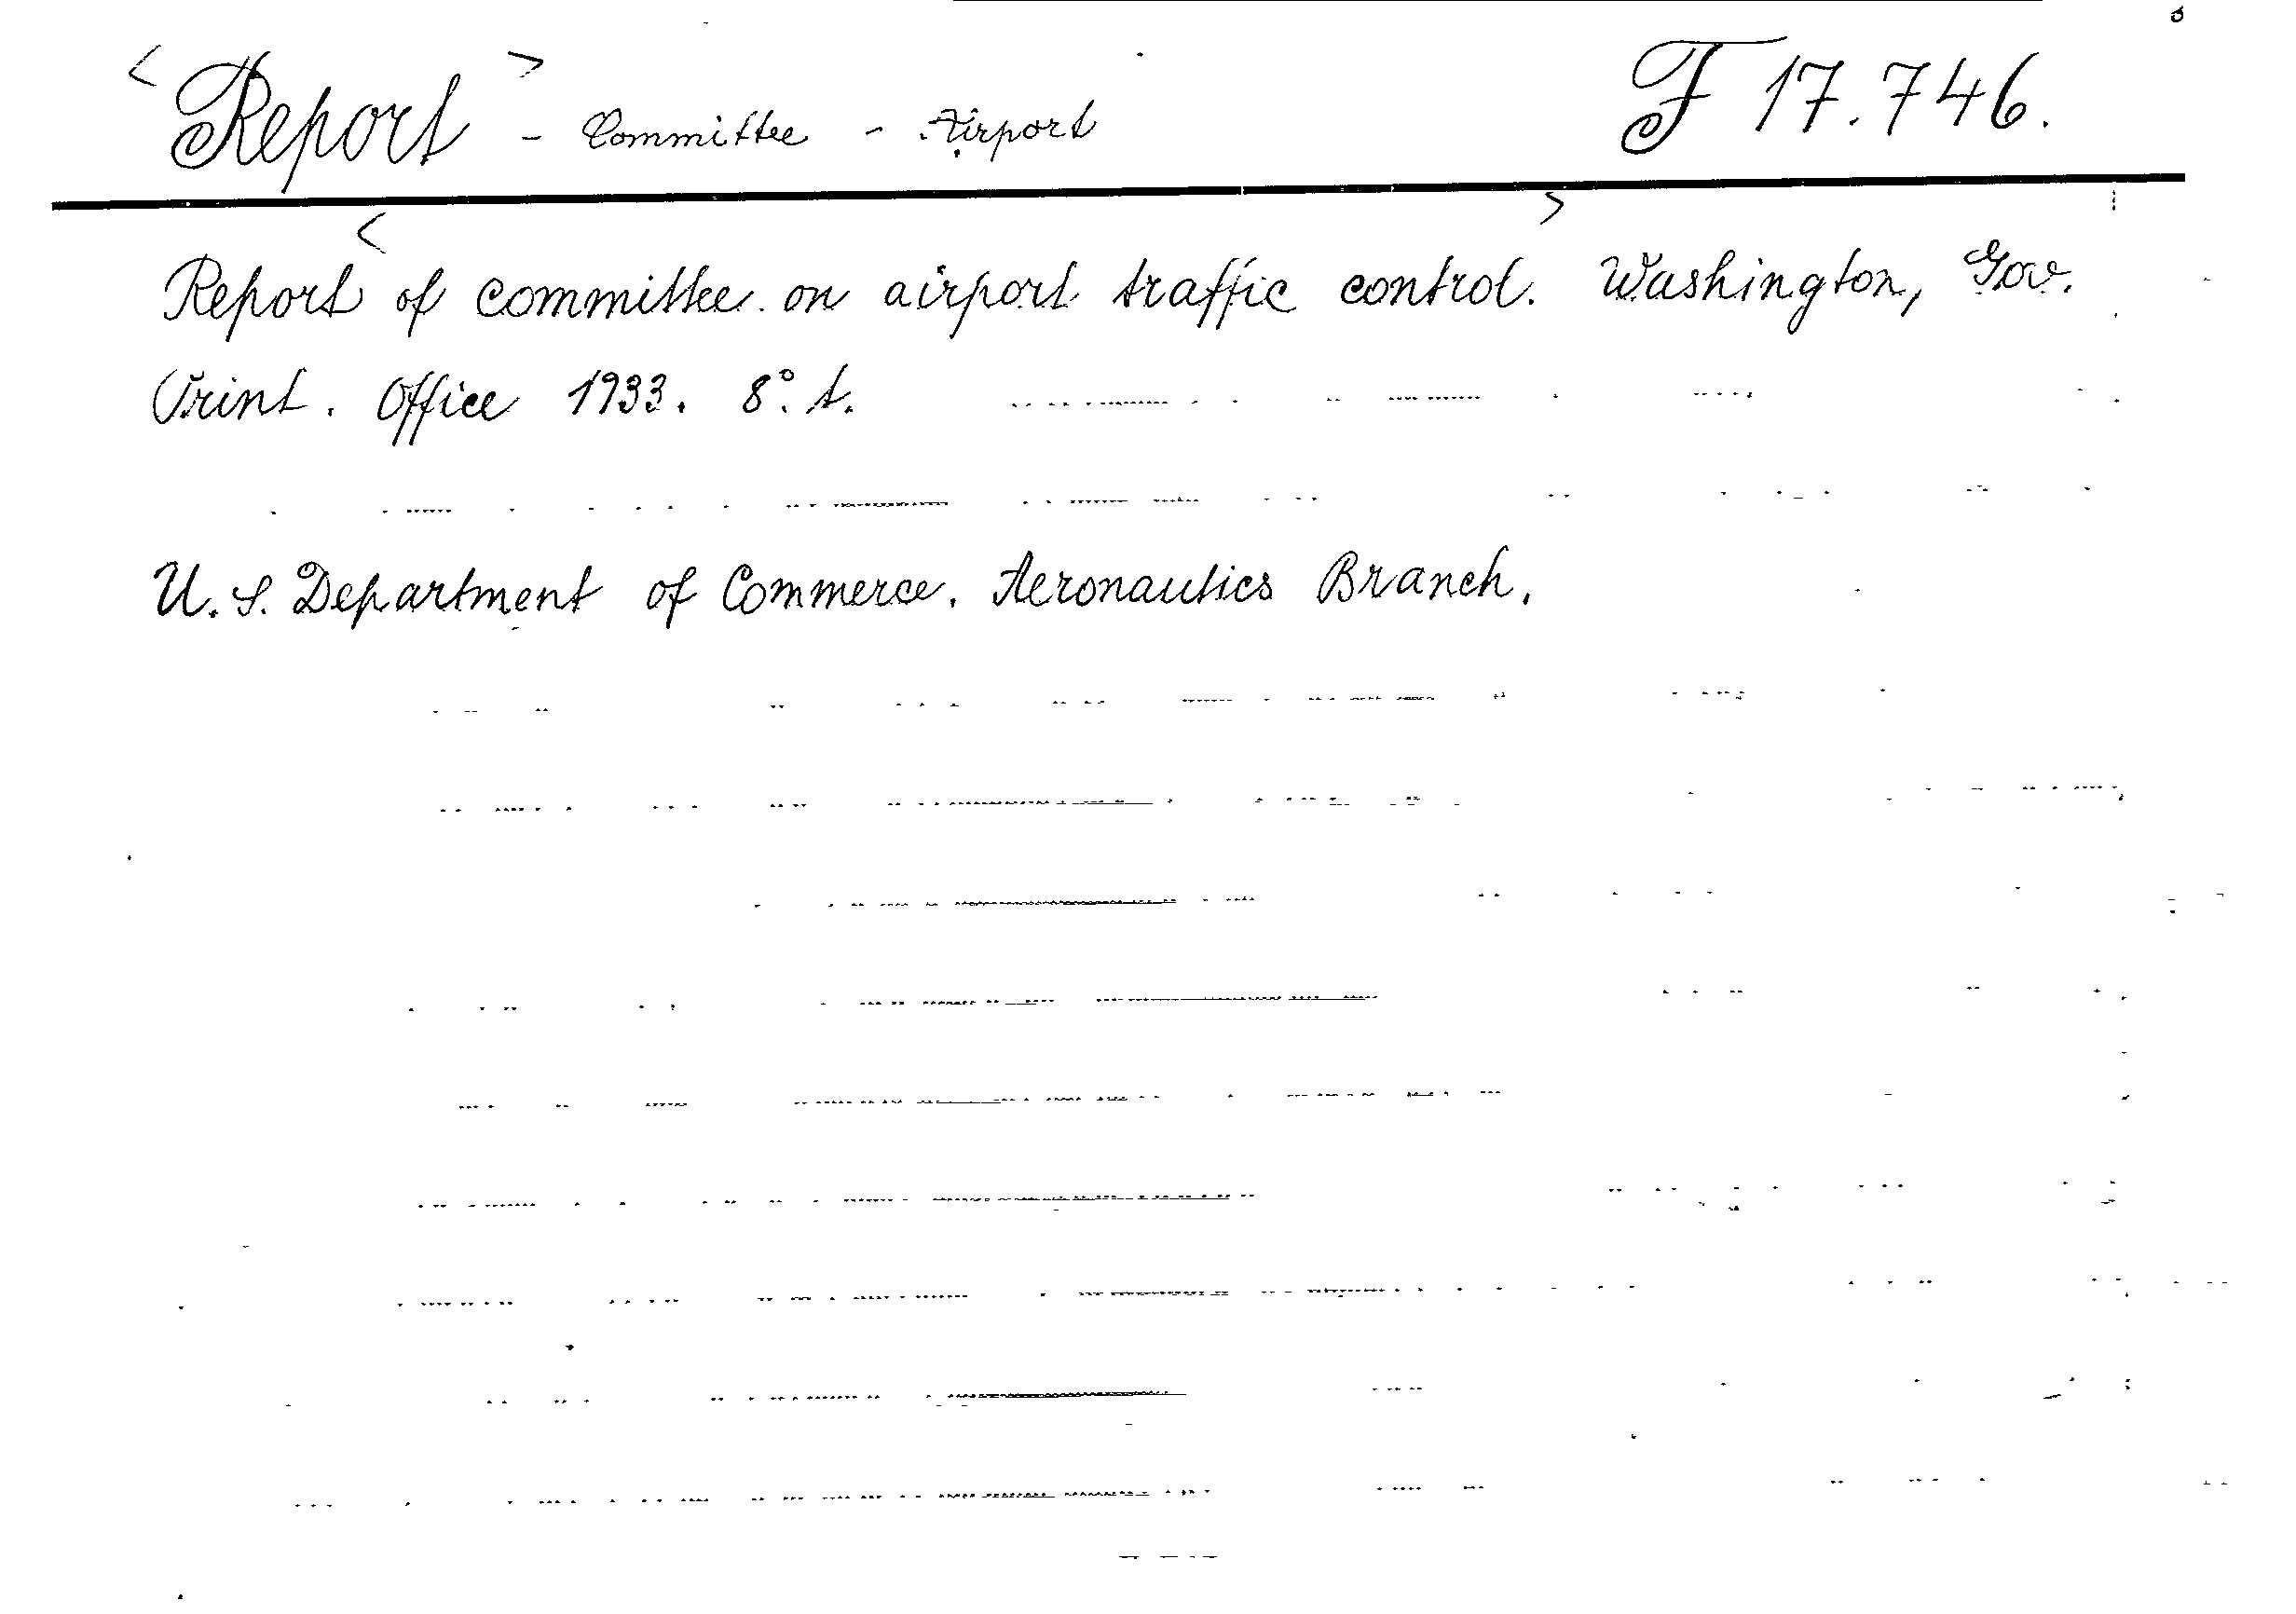 <Report> - Committee - Airport F 17.746.
Report <of committee on airport traffic control.> Washington, Gov.
Print. Office 1933. 8°. t.
U. S. Department of Commerce. Aeronautics Branch.